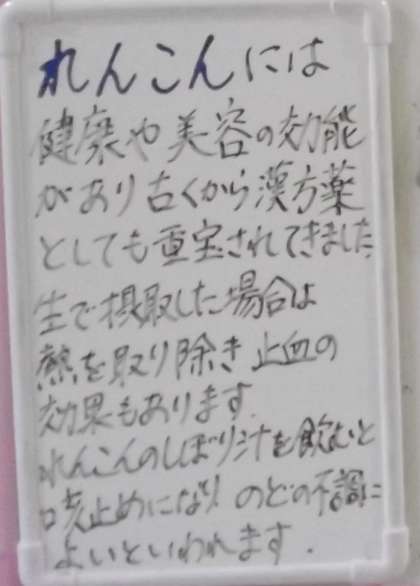 れんこんには
健康や美容の効能
があり古くから漢方薬
としても重宝されてきました
生で摂取した場合は
熱を取り除き止血の
効果もあります.
れんこんのしぼり汁を飲むと
咳止めになり のどの不調に
よいといわれます.